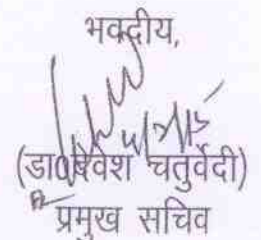 भवदीय,
(डा0देवेश चतुर्वेदी)
प्रमुख सचिव